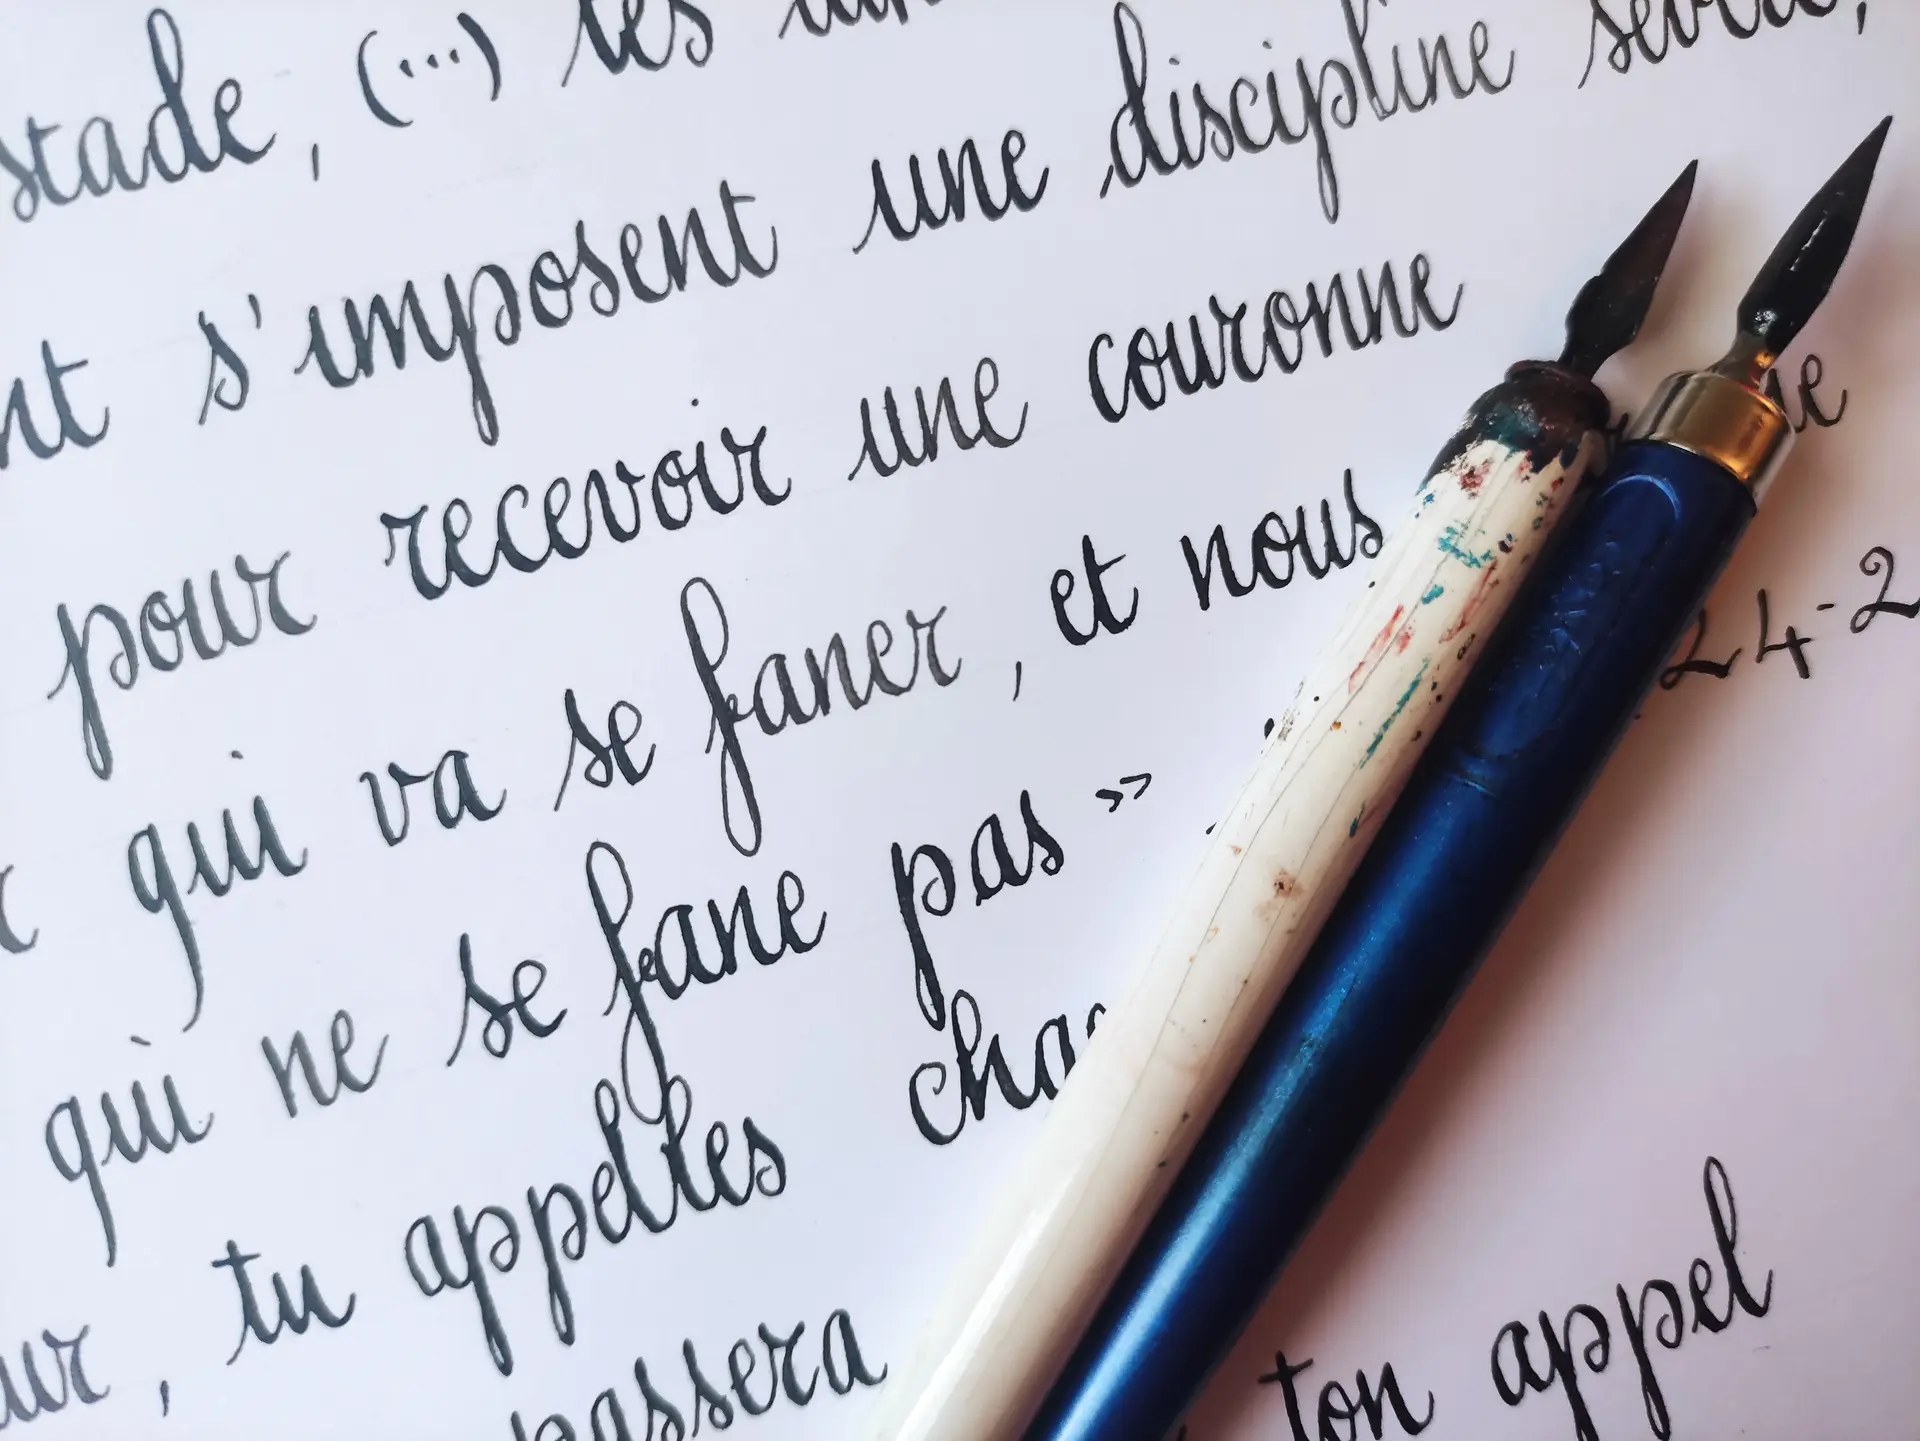 stade, (...) les
s'imposent une discipline sévère,
pour recevoir une couronne
qui va se faner, et nous
qui ne se fane pas »
24-2
tu appelles
passera
ton appel